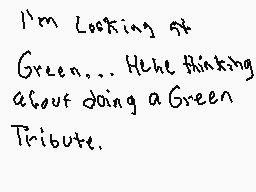 I'm Looking at
Green... Hehe thinking
about doing a Green
Tribute.